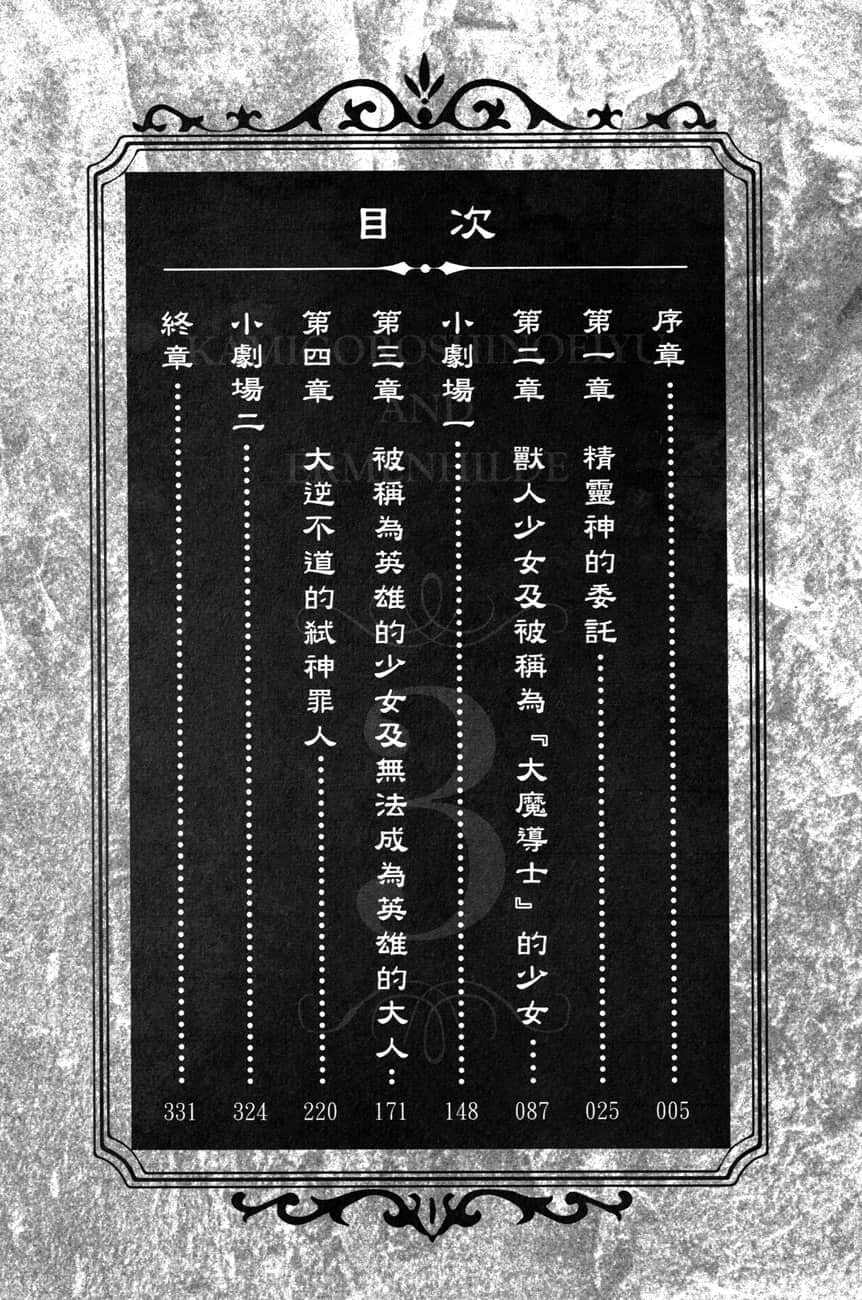 目 次
序章 005
第一章 精靈神的委託 025
第二章 獸人少女及被稱為『大魔導士』的少女 087
小劇場一 148
第三章 被稱為英雄的少女及無法成為英雄的大人 171
第四章 大逆不道的弒神罪人 220
小劇場二 324
終章 331
KAMIGOROSHINOEIYU
AND
ERMENHILDE
3